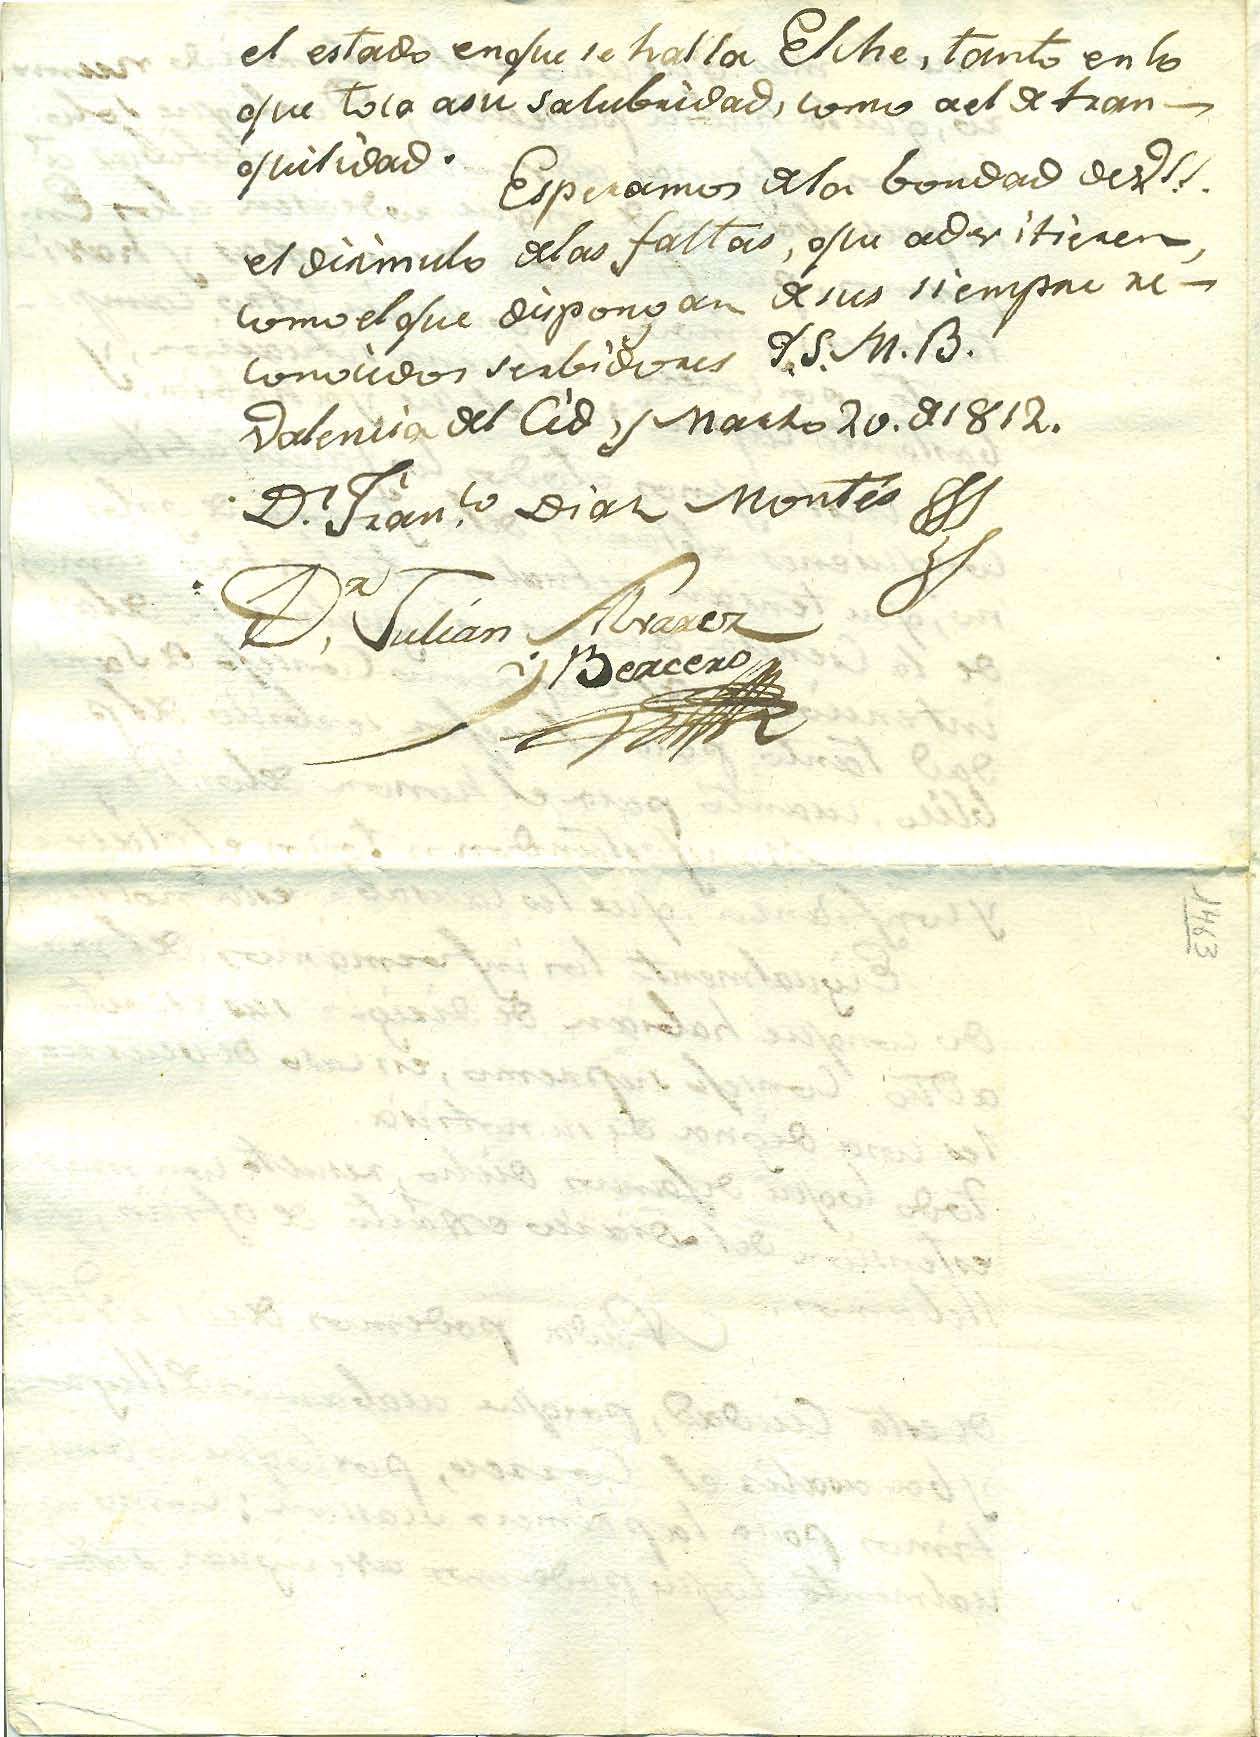 el estado enque se halla Elche, tanto en lo
que toca asu salubridad, como ael de tran-
quilidad.
Esperamos dela bondad de VSS.
el disimulo delas faltas, que advirtieren,
como el que dispongan de sus siempre re-
conocidos serbidores Q.S.M.B.
Valencia del Cid y Marzo 20. de 1812.
Dn. Franco. Diaz Montés
Dn. Julian Alvarez
y Bercero
1463